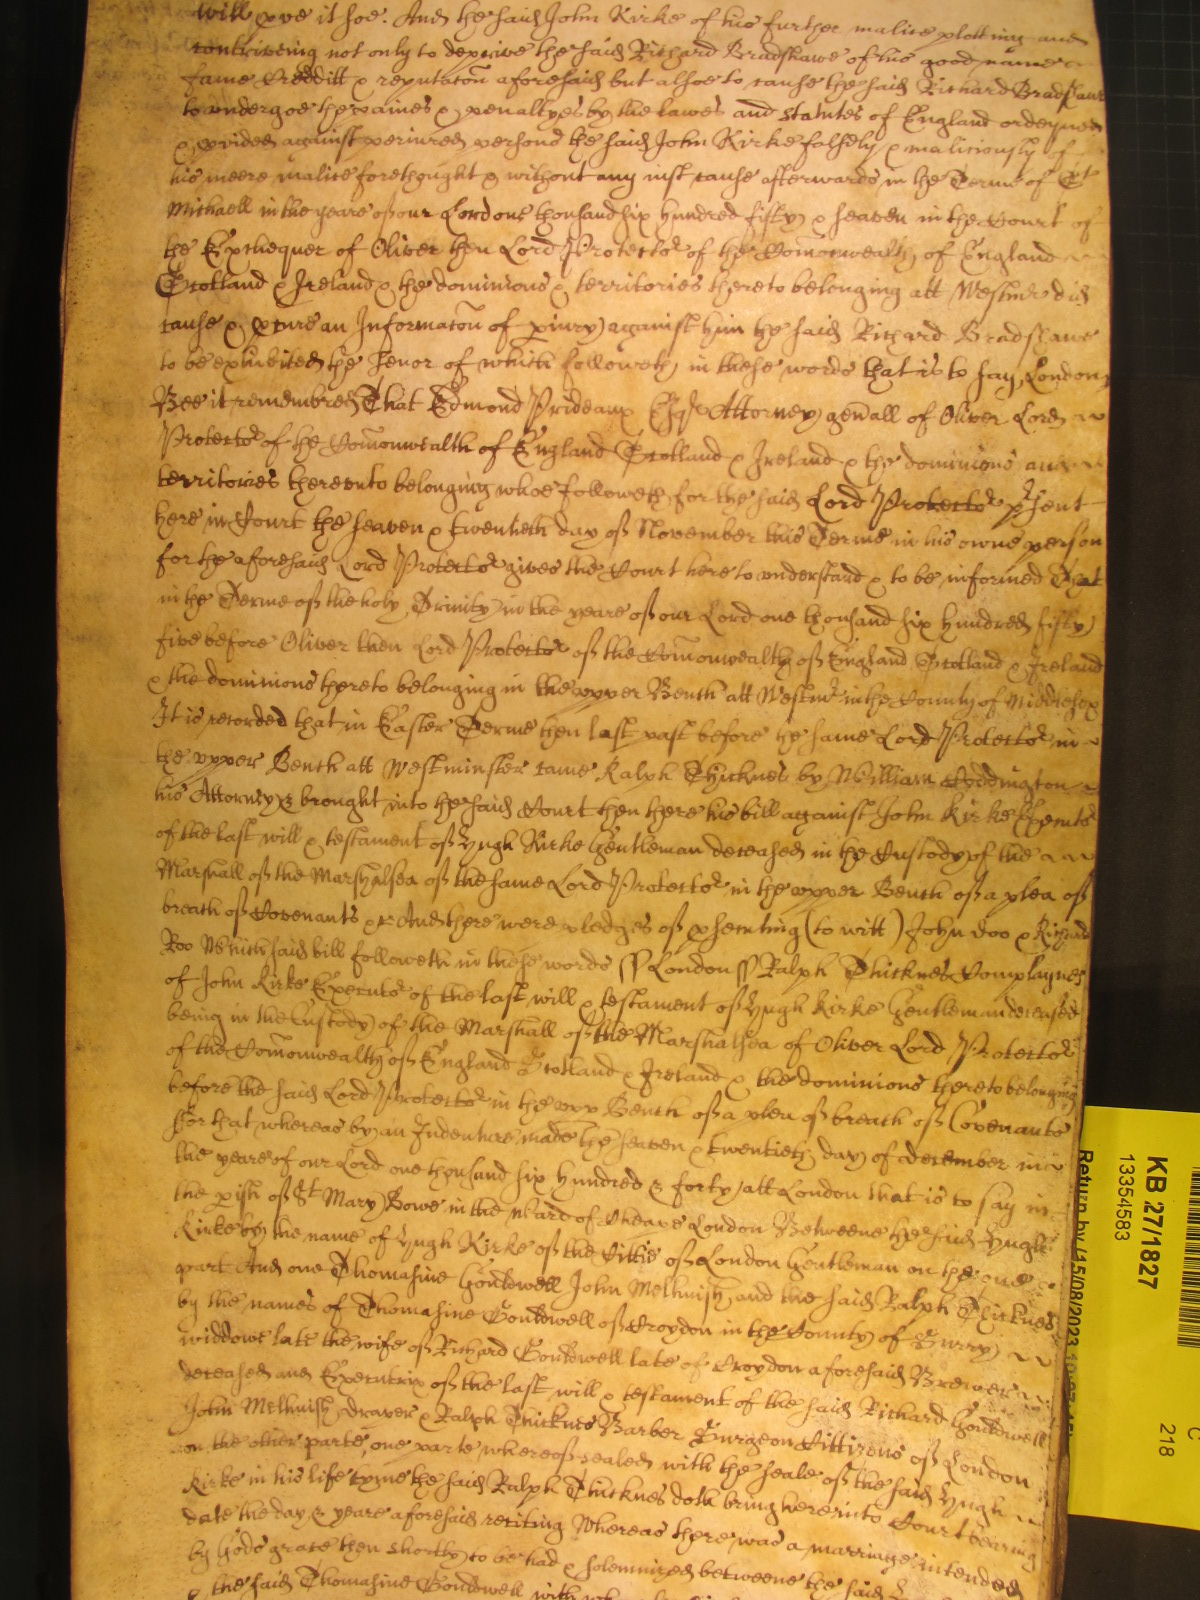 will prove it soe. And the said John Kirke of his further malice plotting and
contriveing not only to deprive the said Richard Bradshawe of his good name
fame Credditt & reputacon aforesaid but alsoe to cause the said Richard Bradshawe
to undergoe the paines & penaltyes by the lawes and statutes of England ordeyned
& p'vided against periured persons the said John Kirke falsely & maliciously of
his meere malice forethought & without any iust cause afterwards in the Terme of St
Michaell in the yeare of our Lord one thousand six hundred fifty & seaven in the Court of
the Exchequer of Oliver then Lord Protector of the Comonwealth of England
Scotland & Ireland & the dominions & territories thereto belonging att Westmr did
cause & p'cure an Informacon of piury against him the said Richard Bradshawe
to be exhibited the Tenor of which followeth in these words that is to say London
Bee it remembred That Edmond Prideaux Esqr Attorney gen'all of Oliver Lord
Protector of the Comonwealth of England Scotland & Ireland & the dominions and
territories thereunto belonging whoe followeth for the said Lord Protector p'sent
here in Court the seaven & twentieth day of November this Terme in his owne person
for the aforesaid Lord Protector gives the Court here to understand & to be informed That
in the Terme of the holy Trinity in the yeare of our Lord one thousand six hundred fifty
five before Oliver then Lord Protector of the Comonwealth of England Scotland & Ireland
& the dominions thereto belonging in the upper Bench att Westmr in the County of Middlesex
It is recorded that in Easter Terme then last past before the same Lord Protector in
the upper Bench att Westminster came Ralph Thicknes by William Coddington
his Attorney & brought into the said Court then there his bill against John Kirke Executor
of the last will & testament of Hugh Kirke Gentleman deceased in the Custody of the
Marshall of the Marshalsea of the same Lord Protector in the upper Bench of a plea of
breach of Covenants &c And there were pledges of p'secuting (to witt) John doo & Richard
Roo Which said bill followeth in these words ss London ss Ralph Thicknes Complaynes
of John Kirke Executor of the last will & testament of Hugh Kirke Gentleman deceased
being in the Custody of the Marshall of the Marshalsea of Oliver Lord Protector
of the Comonwealth of England Scotland & Ireland & the dominions thereto belonging
before the said Lord Protector in the upp Bench of a plea of breach of Covenants
For that whereas by an Indenture made the seaven & twentieth day of december in
the yeare of our Lord one thousand six hundred & forty att London that is to say in
the pish of St Mary Bowe in the Ward of Cheape London Betweene the said Hugh
Kirke by the name of Hugh Kirke of the Cittie of London Gentleman on the one
part And one Thomasine Gouldwell John Mellhuish and the said Ralph Thicknes
by the names of Thomasine Gouldwell of Croydon in the County of Surry
widdowe late the wife of Richard Gouldwell late of Croydon aforesaid Brewer
deceased and Executrix of the last will & testament of the said Richard Gouldwell
John Mellhuish draper & Ralph Thicknes Barber Surgeon Cittizens of London
on the other parte one parte whereof sealed with the seale of the said Hugh
Kirke in his life tyme the said Ralph Thicknes doth bring here into Court bearing
date the day & yeare aforesaid reciting Whereas there was a marriage intended
by Gods grace then shortly to be had & solemnized betweene the said
& the said Thomasine Gouldwell with
KB 27/1827
13354583
Return by (15/08/2023
218
C